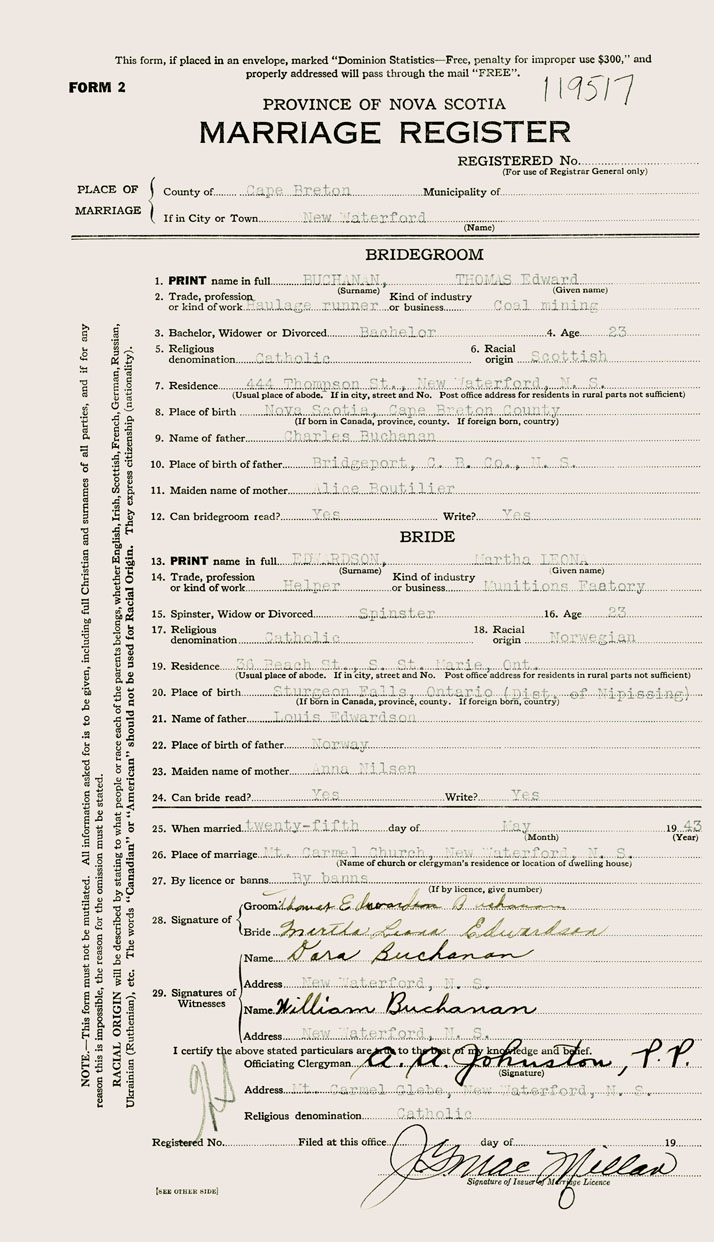 This form, if placed in an envelope, marked "Dominion Statistics—Free, penalty for improper use $300," and
properly addressed will pass through the mail "FREE".
FORM 2
119517
PROVINCE OF NOVA SCOTIA
MARRIAGE REGISTER
REGISTERED No.
(For use of Registrar General only)
PLACE OF MARRIAGE
County of Cape Breton Municipality of
If in City or Town New Waterford
(Name)
BRIDEGROOM
1. PRINT name in full BUCHANAN, THOMAS Edward
(Surname) (Given name)
2. Trade, profession or kind of work Haulage runner Kind of industry or business Coal mining
3. Bachelor, Widower or Divorced Bachelor 4. Age 23
5. Religious denomination Catholic 6. Racial origin Scottish
7. Residence 444 Thompson St., New Waterford, N. S.
(Usual place of abode. If in city, street and No. Post office address for residents in rural parts not sufficient)
8. Place of birth Nova Scotia, Cape Breton County
(If born in Canada, province, county. If foreign born, country)
9. Name of father Charles Buchanan
10. Place of birth of father Bridgeport, C. B. Co., N. S.
11. Maiden name of mother Alice Boutilier
12. Can bridegroom read? Yes Write? Yes
BRIDE
13. PRINT name in full EDWARDSON, Martha LEONA
(Surname) (Given name)
14. Trade, profession or kind of work Helper Kind of industry or business Munitions Factory
15. Spinster, Widow or Divorced Spinster 16. Age 23
17. Religious denomination Catholic 18. Racial origin Norwegian
19. Residence 36 Beach St., S. St. Marie, Ont.
(Usual place of abode. If in city, street and No. Post office address for residents in rural parts not sufficient)
20. Place of birth Sturgeon Falls, Ontario (Dist. of Nipissing)
(If born in Canada, province, county. If foreign born, country)
21. Name of father Louis Edwardson
22. Place of birth of father Norway
23. Maiden name of mother Anna Nilsen
24. Can bride read? Yes Write? Yes
25. When married twenty-fifth day of May 1943
(Month) (Year)
26. Place of marriage Mt. Carmel Church, New Waterford, N. S.
(Name of church or clergyman's residence or location of dwelling house)
27. By licence or banns By banns
(If by licence, give number)
28. Signature of
Groom Thomas Edwardson Buchanan
Bride Martha Leona Edwardson
29. Signatures of Witnesses
Name Buchanan
Address New Waterford, N. S.
Name William Buchanan
Address New Waterford, N. S.
I certify the above stated particulars are true to the best of my knowledge and belief.
Officiating Clergyman A. A. Johnston, P. P.
(Signature)
Address Mt. Carmel Glebe, New Waterford, N. S.
Religious denomination Catholic
Registered No. Filed at this office day of 19
MacMillan
Signature of Issuer of Marriage Licence
[SEE OTHER SIDE]
NOTE.—This form must not be mutilated. All information asked for is to be given, including full Christian and surnames of all parties, and if for any
reason this is impossible, the reason for the omission must be stated.
RACIAL ORIGIN will be described by stating to what people or race each of the parents belongs, whether English, Irish, Scottish, French, German, Russian,
Ukrainian (Ruthenian), etc. The words "Canadian" or "American" should not be used for Racial Origin. They express citizenship (nationality).